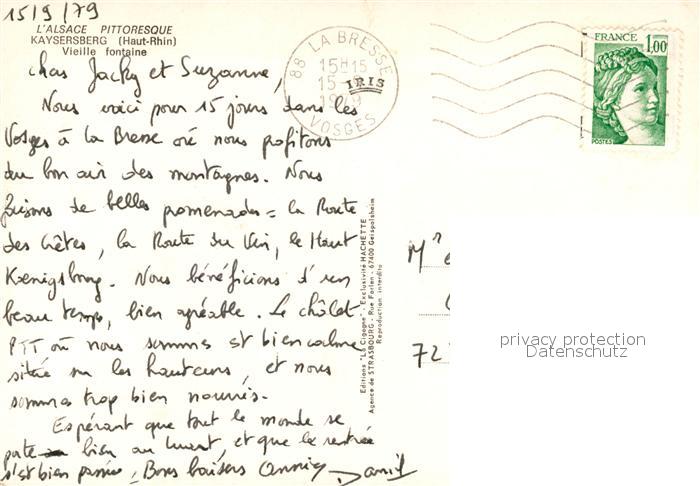 15/9/79
L'ALSACE PITTORESQUE
KAYSERSBERG (Haut-Rhin)
Vieille fontaine
88 LA BRESSE
15H15
15-
IRIS
VOSGES
FRANCE
1,00
POSTES
Chers Jacky et Suzanne,
Nous voici pour 15 jours dans les
Vosges à la Bresse où nous profitons
du bon air des montagnes. Nous
faisons de belles promenades = la Route
des Crêtes, la Route du Vin, le Haut
Koenigsbourg. Nous bénéficions d'un
beau temps, bien agréable. Le châlet
PTT où nous sommes est bien calme
située sur les hauteurs, et nous
sommes trop bien nourris.
Espérant que tout le monde se
porte bien au Luart, et que la rentrée
s'est bien passée, Bons baisers Annick Daniel
Editions "La Cigogne" - Exclusivité HACHETTE
Agence de STRASBOURG - Rue Forlen - 67400 Geispolsheim
Reproduction interdite
Mr e
72
privacy protection
Datenschutz